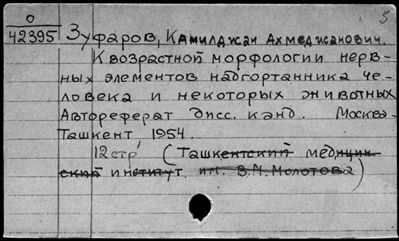 5
0
42395 Зуфаров, Камилджан Ахмеджанович.
К возрастной морфологии нерв-
ных элементов надгортанника че-
ловека и некоторых животных
Автореферат дисс. канд. Москва-
Ташкент 1954.
12 стр (Ташкентский медицин-
ский институт. им. В.М. Молотова)